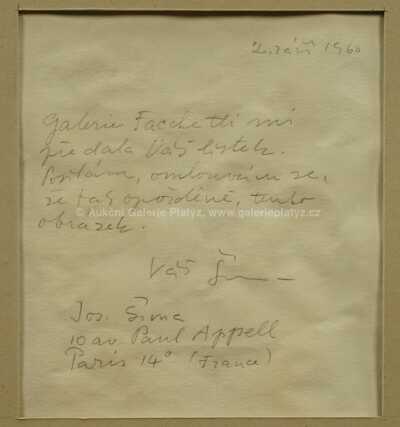 2. září 1960
Galerie Facchetti mi
předala Váš lístek.
Posílám, omlouvám se,
že tak opožděně, tento
© Aukční Galerie Platýz, www.galerieplatyz.cz
obrázek.
Váš Šíma
Jos. Šíma
10 av. Paul Appell
Paris 14° (France)